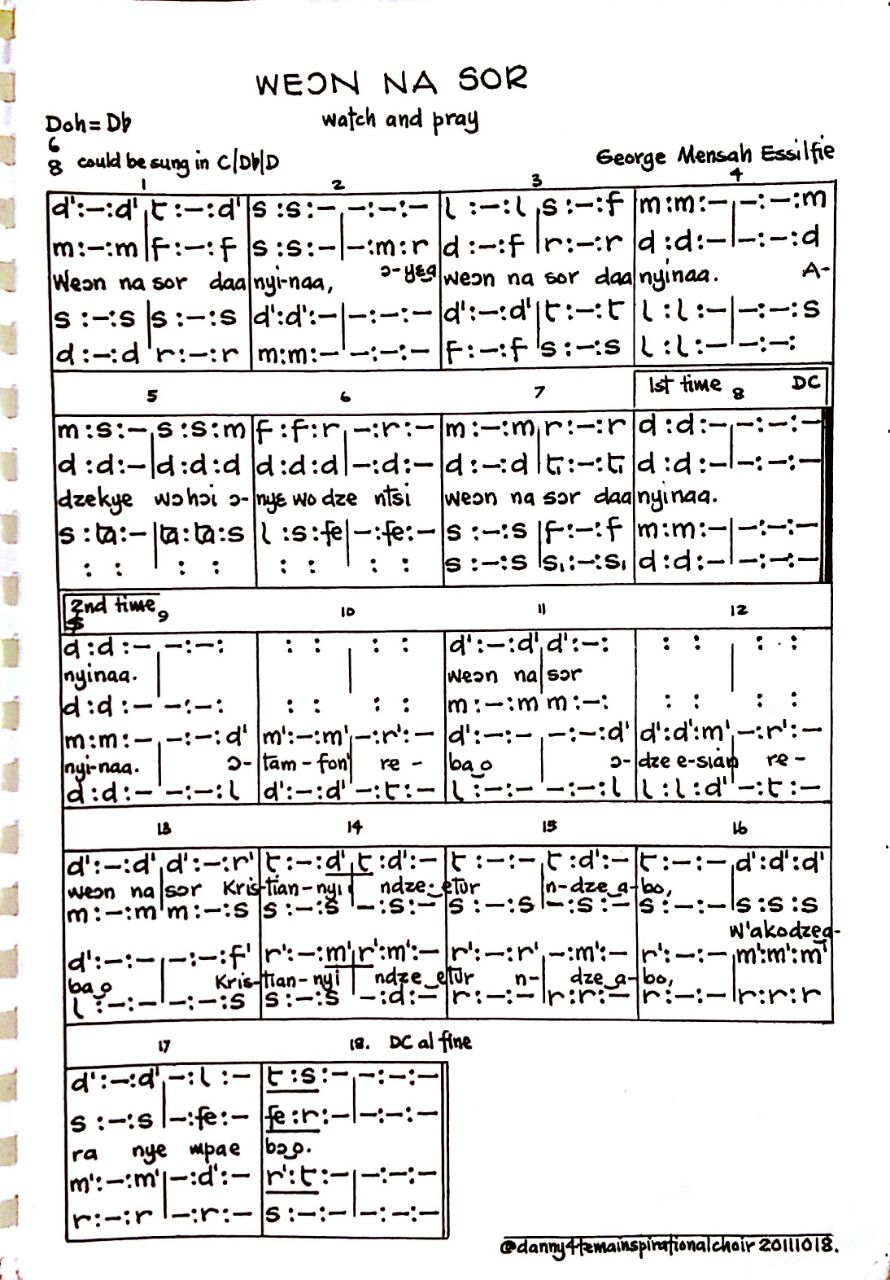 WEƆN NA SOR
Doh= D♭
watch and pray
6
8 could be sung in C|D♭|D
George Mensah Essilfie
1 2 3 4
d':–:d'|t:–:d' s:s:–|–:–:– l:–:l|s:–:f m:m:–|–:–:m
m:–:m|f:–:f s:s:–|–:m:r d:–:f|r:–:r d:d:–|–:–:d
Weɔn na sor daa nyi-naa, ɔ-yɛa weɔn na sor daa nyinaa. A-
s:–:s|s:–:s d':d':–|–:–:– d':–:d'|t:–:t l:l:–|–:–:s
d:–:d|r:–:r m:m:–|–:–:– f:–:f|s:–:s l:l:–|–:–:
5 6 7 1st time 8 DC
m:s:–|s:s:m f:f:r|–:r:– m:–:m|r:–:r d:d:–|–:–:–
d:d:–|d:d:d d:d:d|–:d:– d:–:d|t₁:–:t₁ d:d:–|–:–:–
dzekye wɔhɔi ɔ-nyɛ wo dze ntsi weɔn na sɔr daa nyinaa.
s:ta:–|ta:ta:s l:s:fe|–:fe:– s:–:s|f:–:f m:m:–|–:–:–
: : | : : : : | : : s:–:s|s₁:–:s₁ d:d:–|–:–:–
2nd time 9 10 11 12
d:d:–|–:–: : : | : : d':–:d'|d':–: : : | : :
nyinaa. weɔn na sɔr
d:d:– –:–: : : : : m:–:m m:–: : : : :
m:m:–|–:–:d' m':–:m'|–:r':– d':–:–|–:–:d' d':d':m'|–:r':–
nyi-naa. ɔ-tam-fon' re-bao ɔ-dze e-sian re-
d:d:–|–:–:l d':–:d'|–:t:– l:–:–|–:–:l l:l:d'|–:t:–
13 14 15 16
d':–:d'|d':–:r' t:–:d'|t:d':– t:–:–|t:d':– t:–:–|d':d':d'
weɔn na sɔr Kris-tian-nyi ndze-etur n-dze a-bo,
m:–:m|m:–:s s:–:s|–:s:– s:–:s|–:s:– s:–:–|s:s:s
W'akodzea-
d':–:–|–:–:f' r':–:m'|r':m':– r':–:r'|–:m':– r':–:–|m':m':m'
bao Kris-tian-nyi ndze-etur n-dze a-bo,
l:–:–|–:–:s s:–:s|–:d:– r:–:–|r:–:– r:–:–|r:r:r
17 18. DC al fine
d':–:d'|–:l:– t:s:–|–:–:–
s:–:s|–:fe:– fe:r:–|–:–:–
ra nye mpae bɔo.
m':–:m'|–:d':– r':t:–|–:–:–
r:–:r|–:r:– s:–:–|–:–:–
@danny4temainspirationalchoir 20111018.